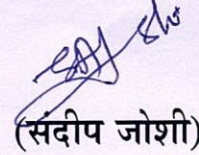 (संदीप जोशी)